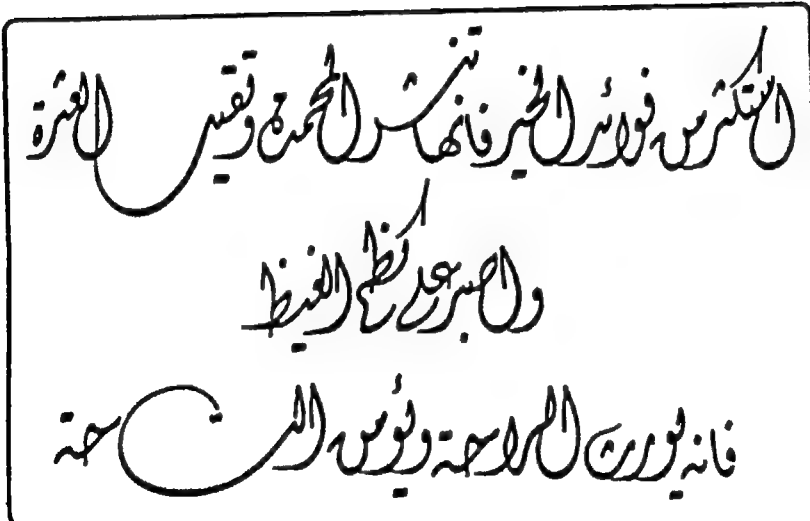 استكثر من فوائد الخير فإنها تنشر المحمدة وتقيل العثرة
واصبر على كظم الغيظ
فانه يورث الراحة ويؤمن الساحة